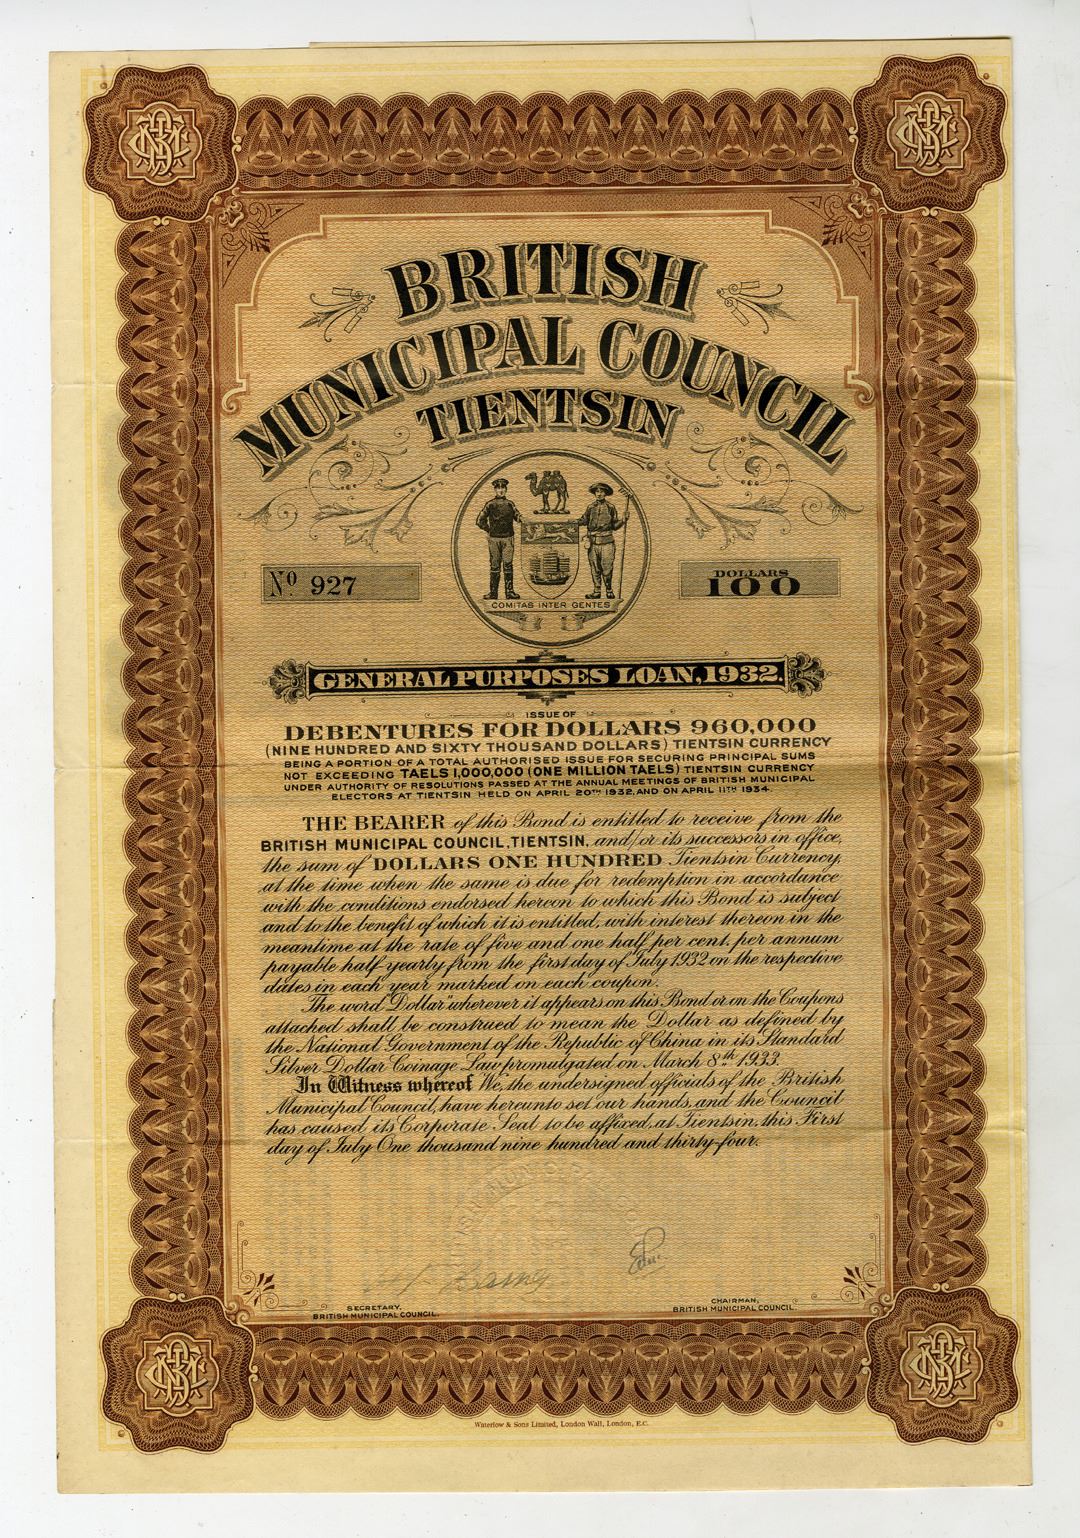 BRITISH
MUNICIPAL COUNCIL
TIENTSIN
COMITAS INTER GENTES
Nº 927
DOLLARS
100
GENERAL PURPOSES LOAN, 1932.
ISSUE OF
DEBENTURES FOR DOLLARS 960,000
(NINE HUNDRED AND SIXTY THOUSAND DOLLARS) TIENTSIN CURRENCY
BEING A PORTION OF A TOTAL AUTHORISED ISSUE FOR SECURING PRINCIPAL SUMS
NOT EXCEEDING TAELS 1,000,000 (ONE MILLION TAELS) TIENTSIN CURRENCY
UNDER AUTHORITY OF RESOLUTIONS PASSED AT THE ANNUAL MEETINGS OF BRITISH MUNICIPAL
ELECTORS AT TIENTSIN HELD ON APRIL 20TH 1932, AND ON APRIL 11TH 1934.
THE BEARER of this Bond is entitled to receive from the
BRITISH MUNICIPAL COUNCIL, TIENTSIN, and/or its successors in office,
the sum of DOLLARS ONE HUNDRED Tientsin Currency,
at the time when the same is due for redemption in accordance
with the conditions endorsed hereon to which this Bond is subject
and to the benefit of which it is entitled, with interest thereon in the
meantime at the rate of five and one half per cent. per annum
payable half-yearly from the first day of July 1932 on the respective
dates in each year marked on each coupon.
The word "Dollar" wherever it appears on this Bond or on the Coupons
attached shall be construed to mean the Dollar as defined by
the National Government of the Republic of China in its Standard
Silver Dollar Coinage Law promulgated on March 8th 1933.
In Witness whereof We, the undersigned officials of the British
Municipal Council, have hereunto set our hands, and the Council
has caused its Corporate Seal to be affixed, at Tientsin, this First
day of July One thousand nine hundred and thirty-four.
SECRETARY,
BRITISH MUNICIPAL COUNCIL.
CHAIRMAN,
BRITISH MUNICIPAL COUNCIL.
Waterlow & Sons Limited, London Wall, London, E.C.